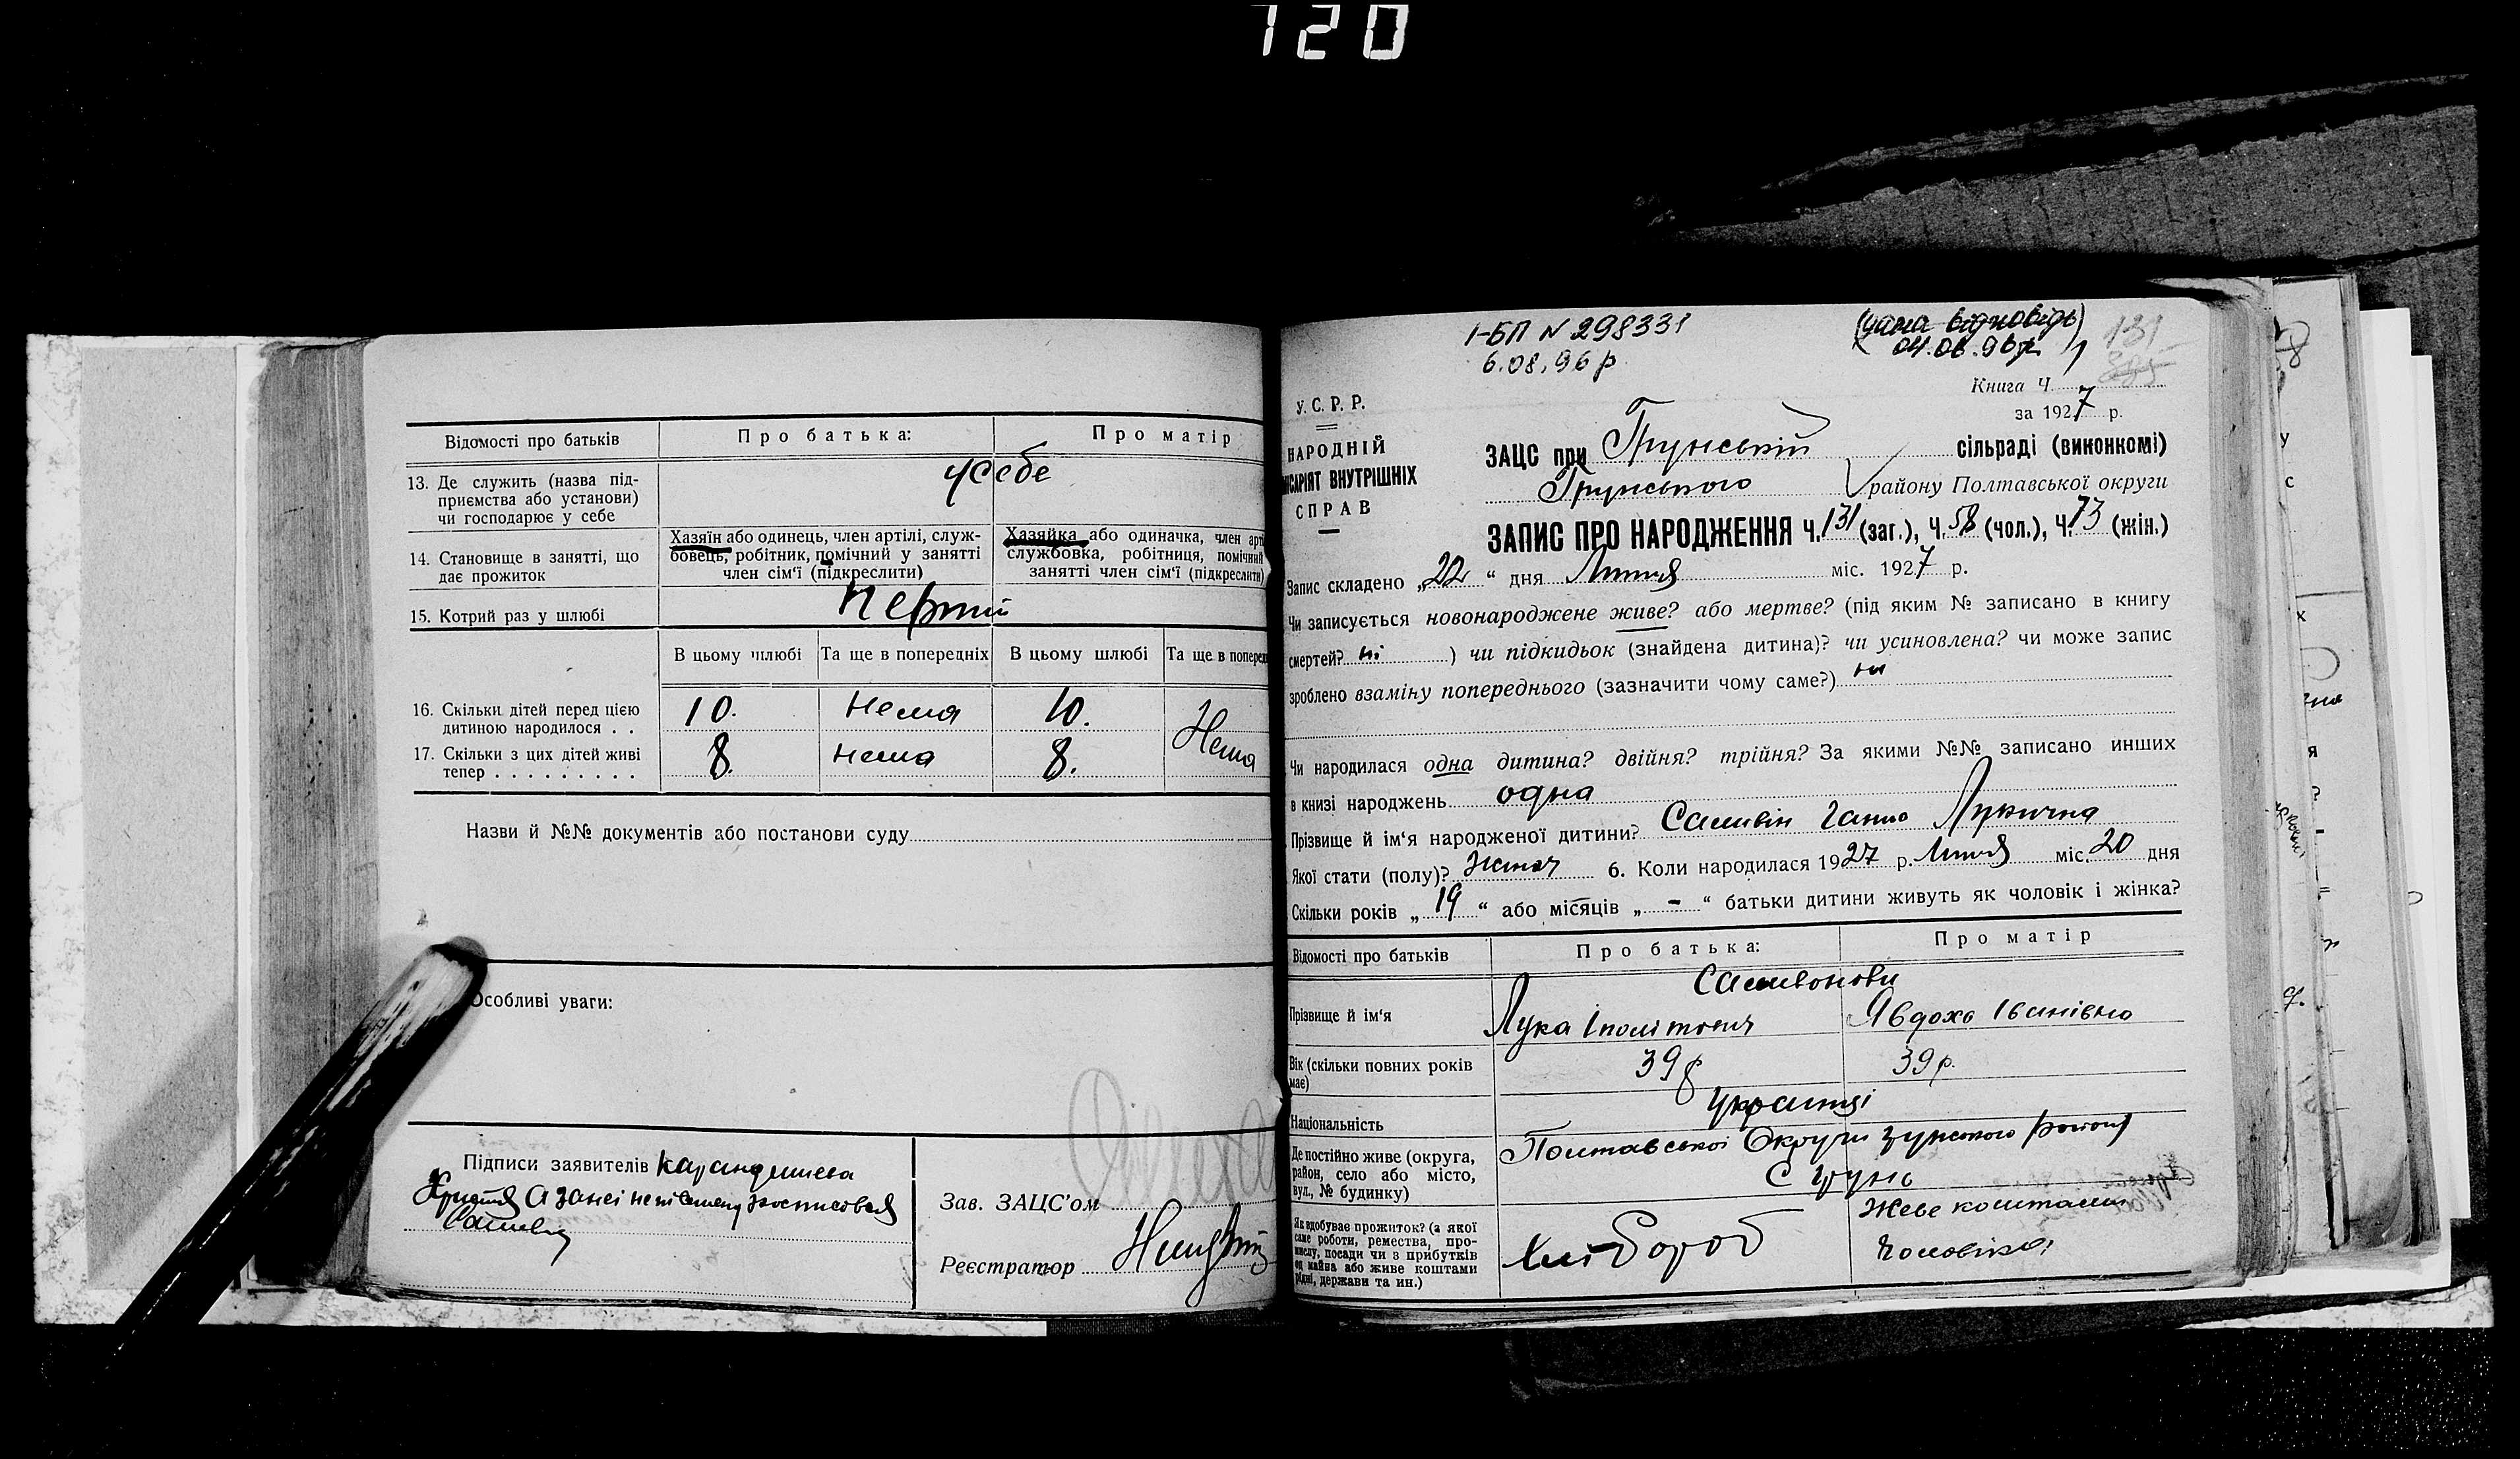 120
Відомості про батьків
Про батька:
Про матір
13. Де служить (назва під-
приємства або установи)
чи господарює у себе
у себе
14. Становище в занятті, що
дає прожиток
Хазяїн або одинець, член артілі, служ-
бовець, робітник, помічний у занятті
член сім'ї (підкреслити)
Хазяйка або одиначка, член арті
службовка, робітниця, помічний
занятті член сім'ї (підкреслити)
15. Котрий раз у шлюбі
первий
В цьому шлюбі
Та ще в попередніх
В цьому шлюбі
Та ще в поперед
16. Скільки дітей перед цією
дитиною народилося . .
10. нема 10. Нема
17. Скільки з цих дітей живі
тепер . . . . . . . . .
8. нема 8.
Назви й №№ документів або постанови суду
Особливі уваги:
Підписи заявителів
Христя а за неї неписьмену росписовся
Зав. ЗАЦС'ом
Реєстратор
І-БП N 298331
6.08.96 р
(дана відповідь)
04.06.96р
131
385
Книга Ч.
за 1927 р.
У. С. Р. Р.
НАРОДНІЙ
ІСАРІЯТ ВНУТРІШНІХ
СПРАВ
ЗАЦС при Грунській сільраді (виконкомі)
Грунського району Полтавської округи
ЗАПИС ПРО НАРОДЖЕННЯ Ч. 131 (заг.), Ч. 58 (чол.), Ч. 73 (жін.)
Запис складено „22“ дня Липня міс. 1927 р.
Чи записується новонароджене живе? або мертве? (під яким № записано в книгу
смертей? ні ) чи підкидьок (знайдена дитина)? чи усиновлена? чи може запис
зроблено взаміну попереднього (зазначити чому саме?) ні
Чи народилася одна дитина? двійня? трійня? За якими №№ записано инших
в книзі народжень одна
Прізвище й ім'я народженої дитини? Ганна Лукична
Якої стати (полу)? Жіноч 6. Коли народилася 1927 р. Липня міс. 20 дня
Скільки років „19“ або місяців „-“ батьки дитини живуть як чоловік і жінка?
Відомості про батьків
Про батька:
Про матір
Прізвище й ім'я
Лука Іполітович
Явдоха Іванівна
Вік (скільки повних років
має)
39 р
39 р.
Національність
Українці
Де постійно живе (округа,
район, село або місто,
вул., № будинку)
Полтавської Округи Грунського району
С Грунь
Як здобуває прожиток? (з якої
саме роботи, ремества, про-
мислу, посади чи з прибутків
од майна або живе коштами
рідні, держави та ин.)
Хлібороб
Живе коштами
Чоловіка